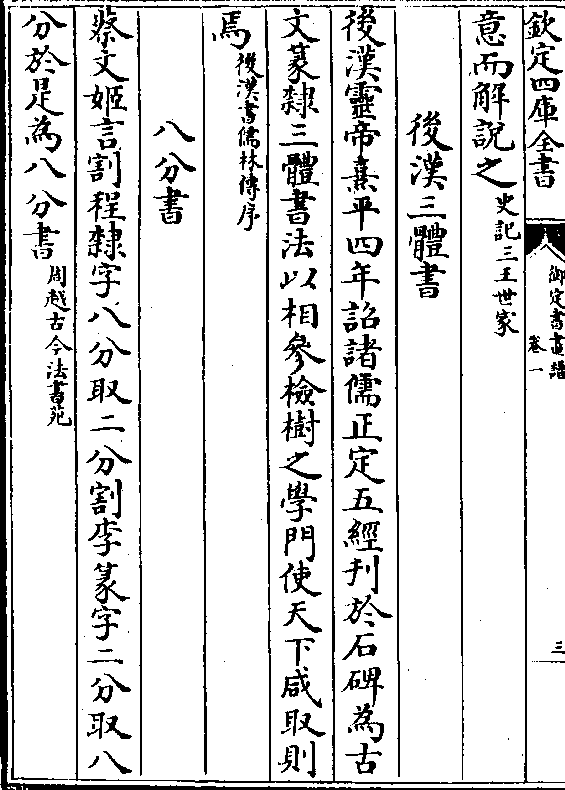 欽定四庫全書
御定書畫譜
卷一
三
意而解説之史記三王世家
後漢三體書
後漢靈帝熹平四年詔諸儒正定五經刋於石碑為古
文篆隸三體書法以相參檢樹之學門使天下咸取則
焉後漢書儒林傳序
八分書
蔡文姬言割程隸字八分取二分割李篆字二分取八
分於是為八分書周越古今法書苑